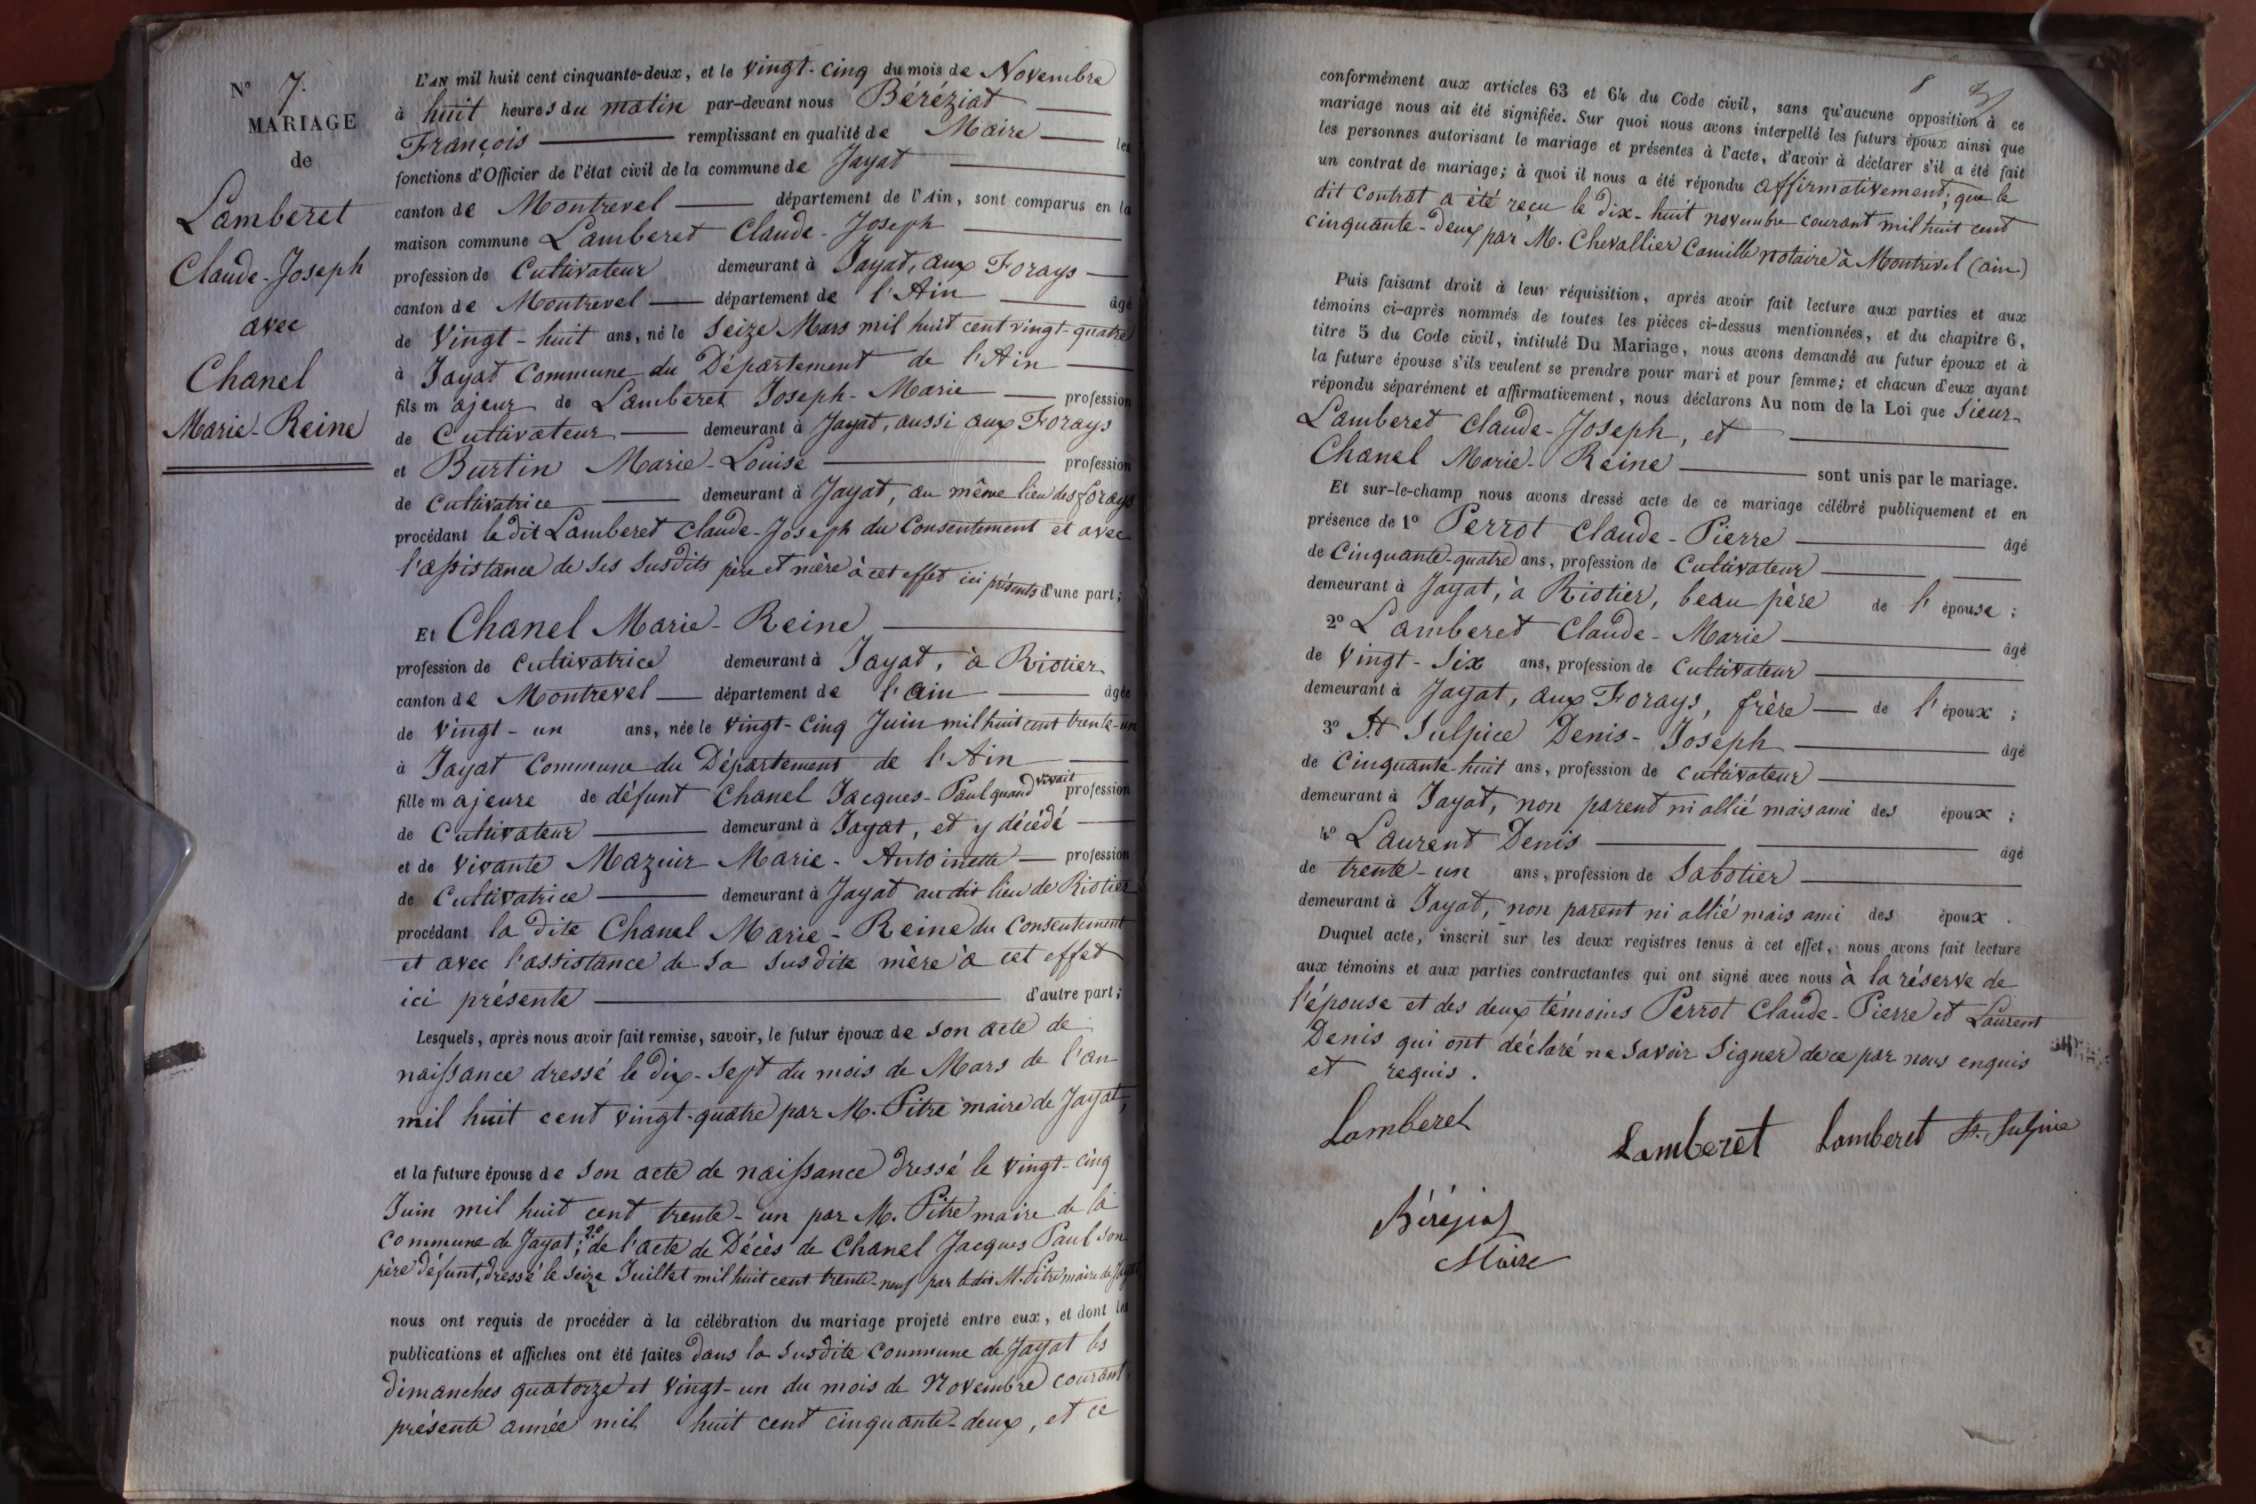 N° 7.
MARIAGE
de
Lamberet
Claude-Joseph
avec
Chanel
Marie-Reine
L'AN mil huit cent cinquante-deux, et le vingt-cinq du mois de Novembre
à huit heures du matin par-devant nous Béréziat
François remplissant en qualité de Maire les
fonctions d'Officier de l'état civil de la commune de Jayat
canton de Montrevel département de l'Ain, sont comparus en la
maison commune Lamberet Claude-Joseph
profession de Cultivateur demeurant à Jayat, aux Forays
canton de Montrevel département de l'Ain âgé
de Vingt-huit ans, né le seize Mars mil huit cent vingt-quatre
à Jayat Commune du Département de l'Ain
fils majeur de Lamberet Joseph-Marie profession
de Cultivateur demeurant à Jayat, aussi aux Forays
et Burtin Marie-Louise profession
de Cultivatrice demeurant à Jayat, au même lieu des forays
procédant le dit Lamberet Claude-Joseph du Consentement et avec
l'assistance de ses susdits père et mère à cet effet ici présents d'une part;
Et Chanel Marie-Reine
profession de Cultivatrice demeurant à Jayat, à Riotier
canton de Montrevel département de l'ain âgée
de Vingt-un ans, née le vingt-cinq Juin mil huit cent trente-un
à Jayat Commune du Département de l'Ain
fille majeure de défunt Chanel Jacques-Paul quand vivait profession
de Cultivateur demeurant à Jayat, et y décédé
et de vivante Mazuir Marie-Antoinette profession
de Cultivatrice demeurant à Jayat au dit lieu de Riotier
procédant la dite Chanel Marie-Reine du Consentement
et avec l'assistance de sa susdite mère à cet effet
ici présente d'autre part;
Lesquels, après nous avoir fait remise, savoir, le futur époux de son acte de
naissance dressé le dix-sept du mois de Mars de l'an
mil huit cent vingt-quatre par M. Pitre maire de Jayat,
et la future épouse de son acte de naissance dressé le vingt-cinq
Juin mil huit cent trente-un par M. Pitre maire de la
Commune de Jayat; 2° de l'acte de Décès de Chanel Jacques Paul son
père défunt, dressé le seize Juillet mil huit cent trente-neuf par le dit M. Pitre maire de Jayat
nous ont requis de procéder à la célébration du mariage projeté entre eux, et dont les
publications et affiches ont été faites dans la susdite Commune de Jayat les
dimanches quatorze et vingt-un du mois de Novembre courant
présente année mil huit cent cinquante-deux, et ce
8
conformément aux articles 63 et 64 du Code civil, sans qu'aucune opposition à ce
mariage nous ait été signifiée. Sur quoi nous avons interpellé les futurs époux ainsi que
les personnes autorisant le mariage et présentes à l'acte, d'avoir à déclarer s'il a été fait
un contrat de mariage; à quoi il nous a été répondu affirmativement; que le
dit Contrat a été reçu le dix-huit novembre courant mil huit cent
cinquante-deux par M. Chevallier Camille notaire à Montrevel (ain)
Puis faisant droit à leur réquisition, après avoir fait lecture aux parties et aux
témoins ci-après nommés de toutes les pièces ci-dessus mentionnées, et du chapitre 6,
titre 5 du Code civil, intitulé Du Mariage, nous avons demandé au futur époux et à
la future épouse s'ils veulent se prendre pour mari et pour femme; et chacun d'eux ayant
répondu séparément et affirmativement, nous déclarons Au nom de la Loi que sieur
Lamberet Claude-Joseph, et
Chanel Marie-Reine sont unis par le mariage.
Et sur-le-champ nous avons dressé acte de ce mariage célébré publiquement et en
présence de 1° Perrot Claude-Pierre âgé
de Cinquante-quatre ans, profession de Cultivateur
demeurant à Jayat, à Riotier, beau père de l'épouse;
2° Lamberet Claude-Marie âgé
de vingt-six ans, profession de Cultivateur
demeurant à Jayat, aux Forays, frère de l'époux;
3° St Sulpice Denis-Joseph âgé
de Cinquante-huit ans, profession de Cultivateur
demeurant à Jayat, non parent ni allié mais ami des époux;
4° Laurent Denis âgé
de trente-un ans, profession de Sabotier
demeurant à Jayat, non parent ni allié mais ami des époux.
Duquel acte, inscrit sur les deux registres tenus à cet effet, nous avons fait lecture
aux témoins et aux parties contractantes qui ont signé avec nous à la réserve de
l'épouse et des deux témoins Perrot Claude-Pierre et Laurent
Denis qui ont déclaré ne savoir signer de ce par nous enquis
et requis.
Lamberet Lamberet Lamberet St. Sulpice
Béréziat
Maire